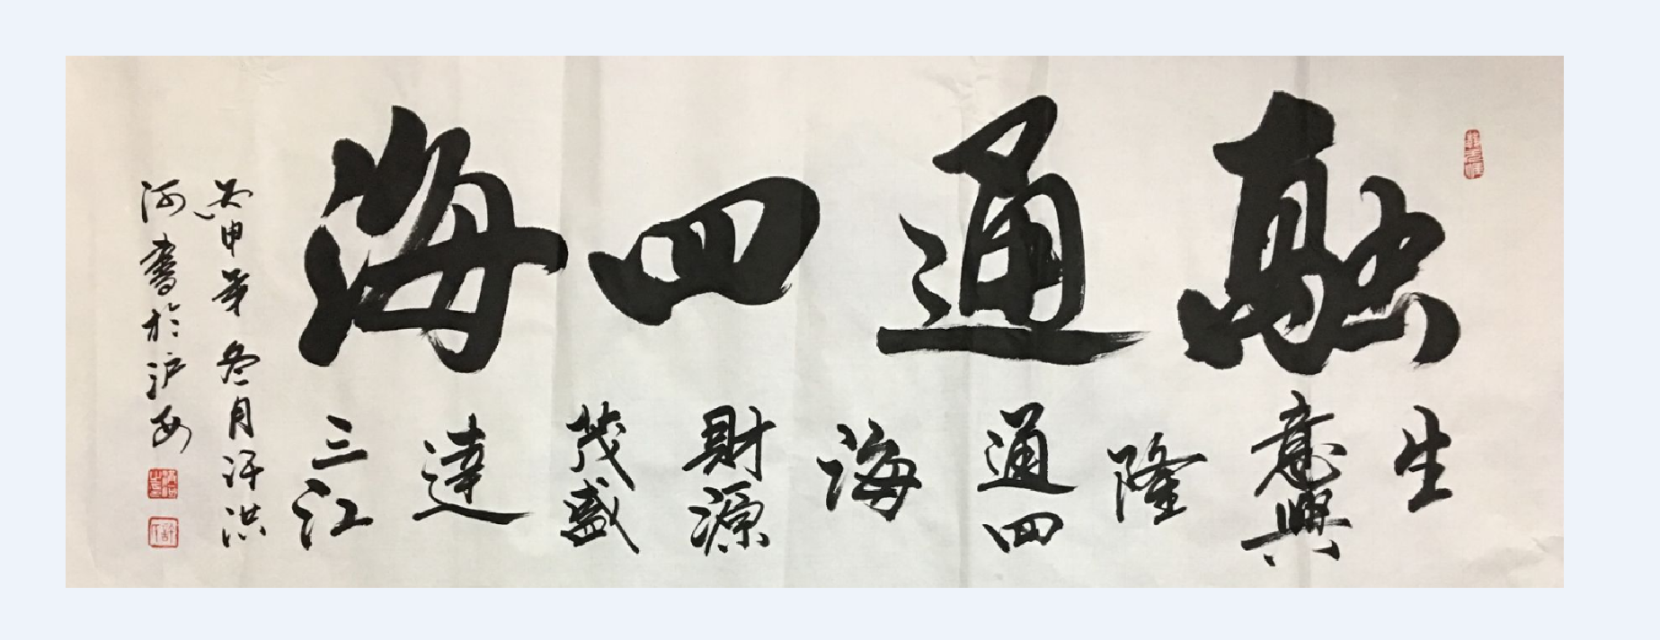 融通四海
生意興隆通四海
財源茂盛達三江
丙申年冬月許洪
河書於沪西